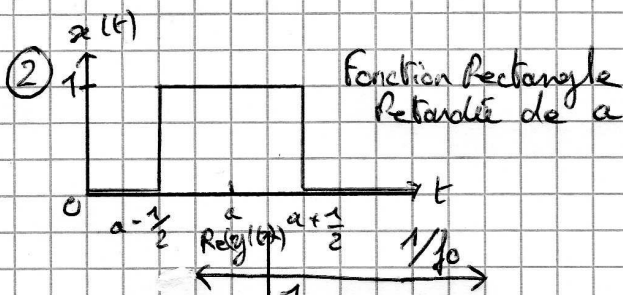 x(t)
② 1 Fonction Rectangle
Retardée de a
0 a - 1/2 a a + 1/2 t
1/f0
1